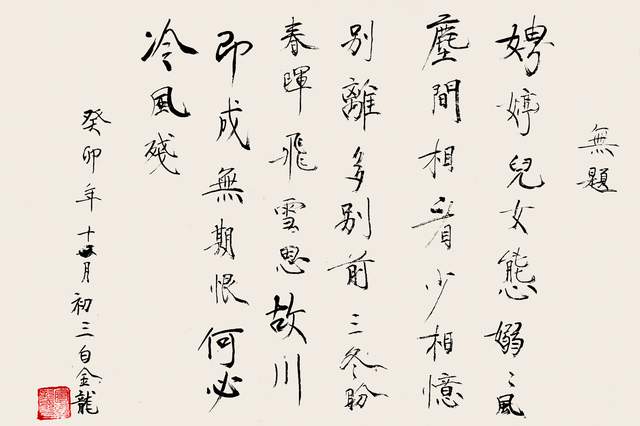 無題
娉婷兒女態嫋〻風
塵間相看少相憶
別離多別前三冬盼
春暉飛雪思故川
即成無期恨何必
冷風殘
癸卯年十月初三白金龍